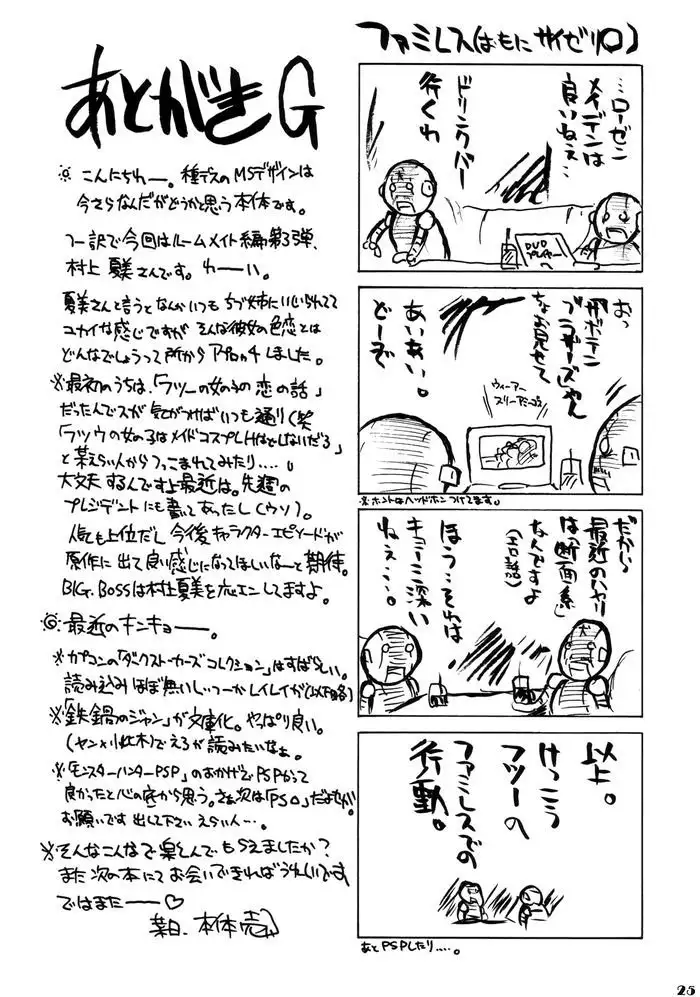 あとがきG
☼ こんにちわー。種デスのMSデザインは
今さらなんだがどうか思う本体です。
つー訳で今回はルームメイト編第3弾、
村上夏美さんです。わーい。
夏美さんと言うとなんかいつもちづ姉にいじられてて
ユカイな感じですがそんな彼女の色恋とは
どんなでしょうって所からアプローチしました。
※最初のうちは、「フツーの女の子の恋の話」
だったんでスが気がつけばいつも通り(笑
「フツウの女の子はメイドコスプレHはとしないだろ」
と某えらい人からつっこまれてみたり‥‥。
大丈夫するんですよ最近は。先週の
プレジデントにも書いてあったし(ウソ)。
人気も上位だし今後キャラクターエピソードが
原作に出て良い感じになってほしいなーと期待。
BIG. BOSSは村上夏美を応エンしてますよ。
◎最近のキンキョー。
※カプコンの「ダークストーカーズコレクション」はすばらしい。
読み込みほぼ無いしっつーかレイレイが(以下略)
※「鉄鍋のジャン」が文庫化。やっぱり良い。
(ヤン×小此木)でえろが読みたいなぁ。
※「モンスターハンターPSP」のおかげでPSPかって
良かったと心の底から思う。さぁ次は「PS○」だよせが
お願いです出して下さいえらい人…。
※そんなこんなで楽しんでもらえましたか?
また次の本にてお会いできればうれしいです
ではまたーー♡
某日、本体売
ファミレス(おもにサイゼリ○)
…ローゼン
メイデンは
良いねぇ…
ドリンクバー
行くわ
DVD
プレイヤー
へ
おっ
「サボテン
ブラザーズ」じゃん
ちょお見せて
あいあい。
どーぞ
ウィーアー
スリーアミーゴス
※ホントはヘッドホンつけてます。
だから
最近のハヤリ
は「断面系」
なんですよ
(エロ話)
ほう‥それは
キョーミ深い
ねぇ…。
以上。
けっこう
フツーの
ファミレスでの
行動。
あとPSPしたり‥‥。
25